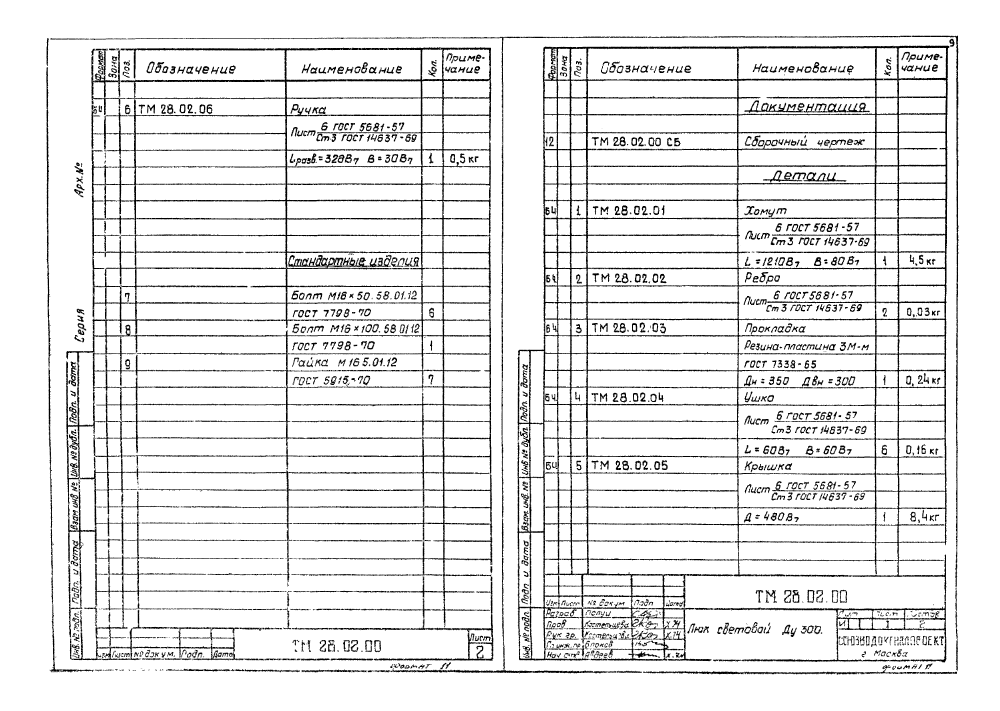 9
Формат Зона Поз. Обозначение Наименование Кол. Приме-
чание
БЧ 6 ТМ 28.02.06 Ручка
Лист 6 ГОСТ 5681-57
Ст3 ГОСТ 14637-69
Lразв.=328В7 В=30В7 1 0,5 кг
Стандартные изделия
7 Болт М16×50.58.01.12
ГОСТ 7798-70 6
8 Болт М16×100.58.01.12
ГОСТ 7798-70 1
9 Гайка М16 5.01.12
ГОСТ 5915-70 7
Арх.№
Серия
Инв.№ подл. Подп. и дата Взам инв. № Инв.№ дубл. Подп. и дата
Изм Лист № докум. Подп. Дата
ТМ 28.02.00
Лист
2
Формат 11
Формат Зона Поз. Обозначение Наименование Кол. Приме-
чание
Документация
12 ТМ 28.02.00 СБ Сборочный чертеж
Детали
БЧ 1 ТМ 28.02.01 Хомут
Лист 6 ГОСТ 5681-57
Ст3 ГОСТ 14637-69
L=1210В7 В=80В7 1 4,5 кг
БЧ 2 ТМ 28.02.02 Ребро
Лист 6 ГОСТ 5681-57
Ст3 ГОСТ 14637-69 2 0,03 кг
БЧ 3 ТМ 28.02.03 Прокладка
Резина-пластина 3М-м
ГОСТ 7338-65
Дн=350 Двн=300 1 0,24 кг
БЧ 4 ТМ 28.02.04 Ушко
Лист 6 ГОСТ 5681-57
Ст3 ГОСТ 14637-69
L=60В7 В=60В7 6 0,16 кг
БЧ 5 ТМ 28.02.05 Крышка
Лист 6 ГОСТ 5681-57
Ст3 ГОСТ 14637-69
Д=480В7 1 8,4 кг
Инв.№ подл. Подп и дата Взам инв. № Инв.№ дубл. Подп. и дата
ТМ 28.02.00
Изм Лист № докум Подп Дата
Разраб
Пров
Рук.гр.
Люк световой Ду 300.
Лист Листов
И 1 2
СОЮЗВОДОКАНАЛПРОЕКТ
г Москва
Формат 11